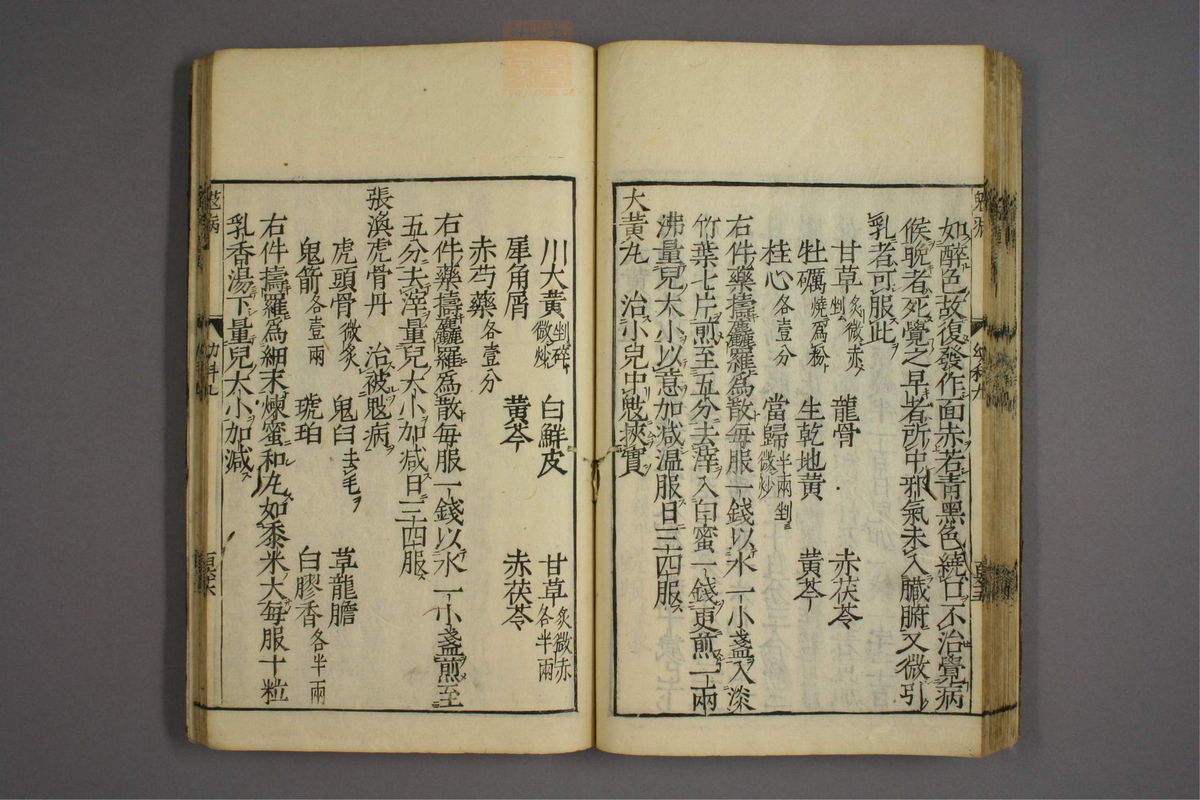 如醉色故復發作面赤若青黑色繞口不治覺病
候晩者死覺之早者所中邪氣未入臟腑又微引
乳者可服此
甘草炙微赤剉 龍骨 赤茯苓
牡礪燒爲粉 生乾地黄 黄芩
桂心各壹分 當歸半兩剉微炒
右件藥擣麤羅爲散毎服一錢以水一小盞入淡
竹葉七片煎至五分去滓入白蜜一錢更煎一兩
沸量兒大小以意加减温服日三四服
大黄丸 治小兒中鬾挾實
川大黄剉碎微炒 白鮮皮 甘草炙微赤各半兩
犀角屑 黄芩 赤茯苓
赤芍藥各壹分
右件藥擣麤羅爲散毎服一錢以水一小盞煎至
五分去滓量兒大小加减日三四服
張渙虎骨丹 治被鬾病
虎頭骨微炙 鬼臼去毛 草龍膽
鬼箭各壹兩 琥珀 白膠香各半兩
右件擣羅爲細末煉蜜和丸如黍米大毎服十粒
乳香湯下量兒大小加减